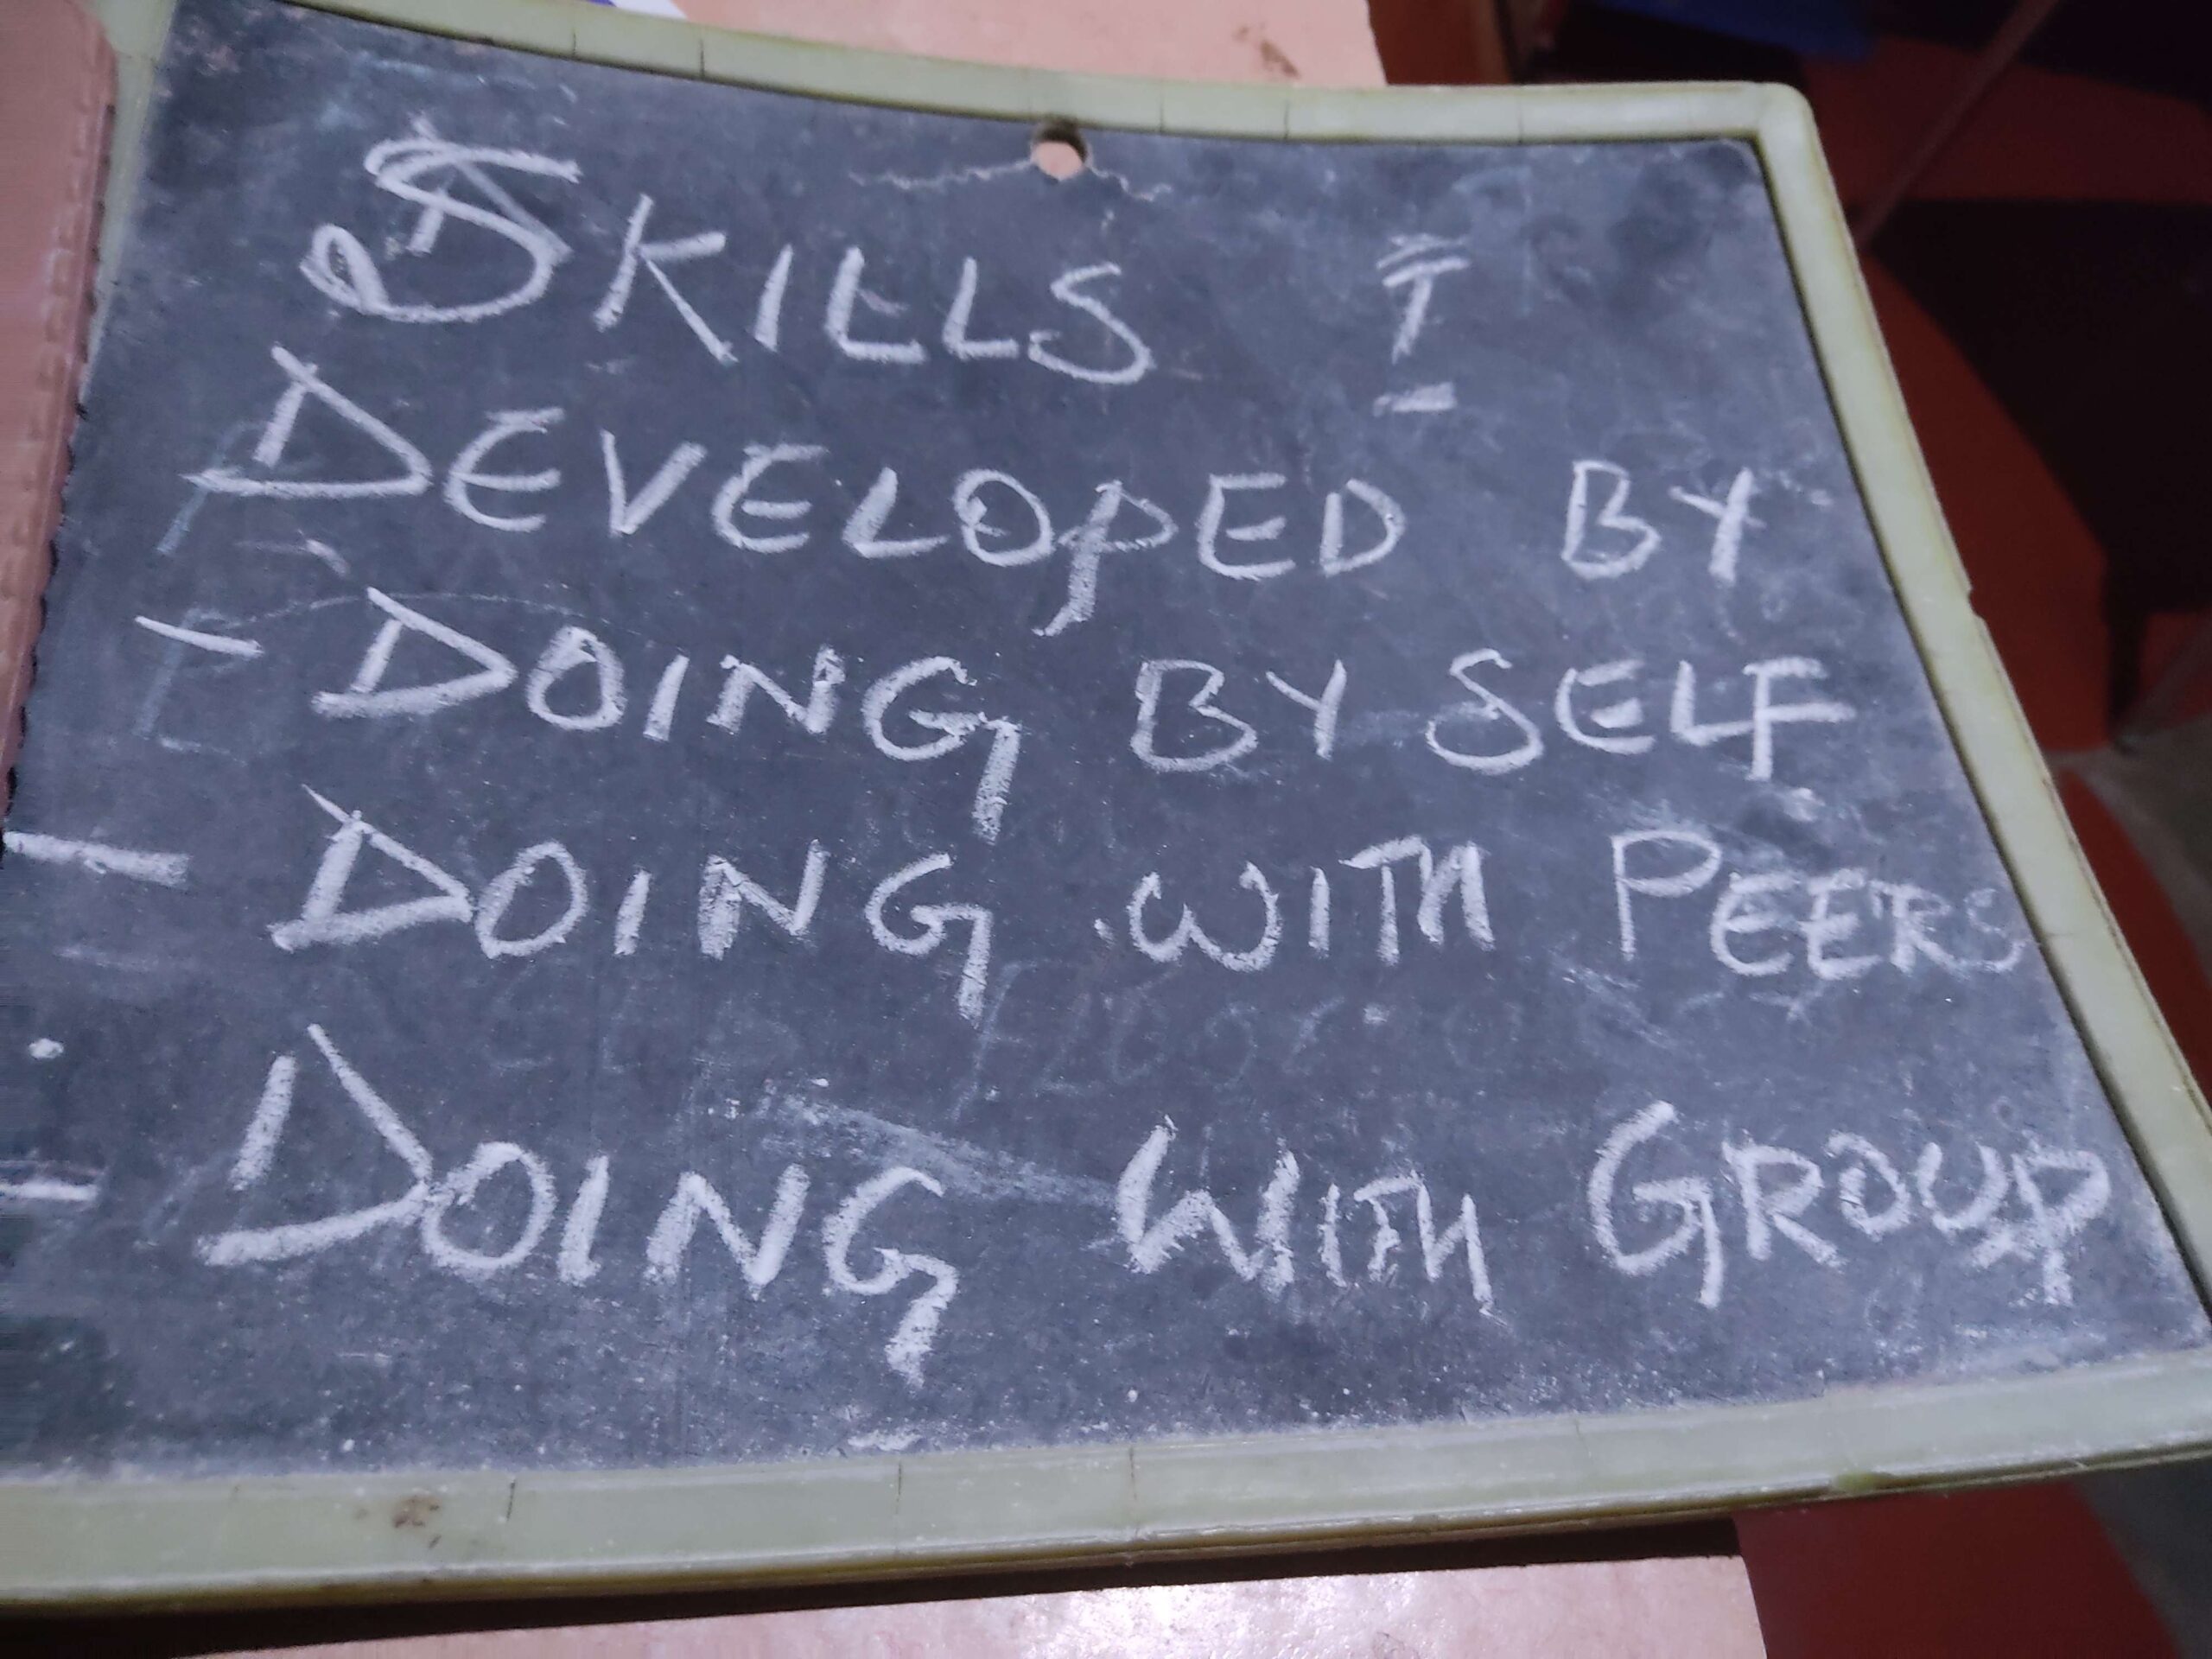 SKILLS I
DEVELOPED BY
- DOING BY SELF
- DOING WITH PEERS
- DOING WITH GROUP